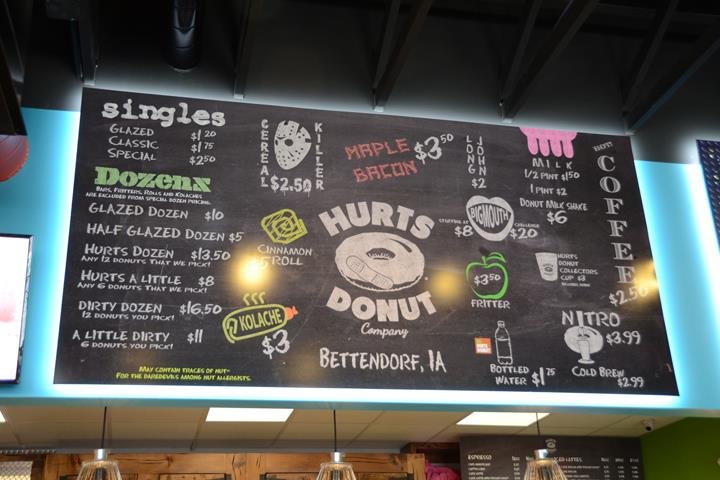 singles
GLAZED $1.20
CLASSIC $1.75
SPECIAL $2.50
Dozens
BARS, FRITTERS, ROLLS AND KOLACHES
ARE EXCLUDED FROM SPECIAL DOZEN PRICING.
GLAZED DOZEN $10
HALF GLAZED DOZEN $5
HURTS DOZEN $13.50
ANY 12 DONUTS THAT WE PICK!
HURTS A LITTLE $8
ANY 6 DONUTS THAT WE PICK!
DIRTY DOZEN $16.50
12 DONUTS YOU PICK!
A LITTLE DIRTY $11
6 DONUTS YOU PICK!
MAY CONTAIN TRACES OF NUT-
FOR THE DAREDEVILS AMONG NUT ALLERGISTS.
CEREAL KILLER
$2.50
CINNAMON
ROLL
KOLACHE
$3
MAPLE
BACON
$3.50
HURTS
DONUT
Company
BETTENDORF, IA
LONG JOHN
$2
BIGMOUTH
STUFFING AT
$8
CHALLENGE
$20
$3.50
FRITTER
BOTTLED
WATER $1.75
MILK
1/2 PINT $1.50
1 PINT $2
DONUT MILK SHAKE
$6
HURTS
DONUT
COLLECTORS
CUP $3
HOT!
COFFEE
$2.50
NITRO
$3.99
COLD BREW
$2.99
ESPRESSO
ICED LATTES